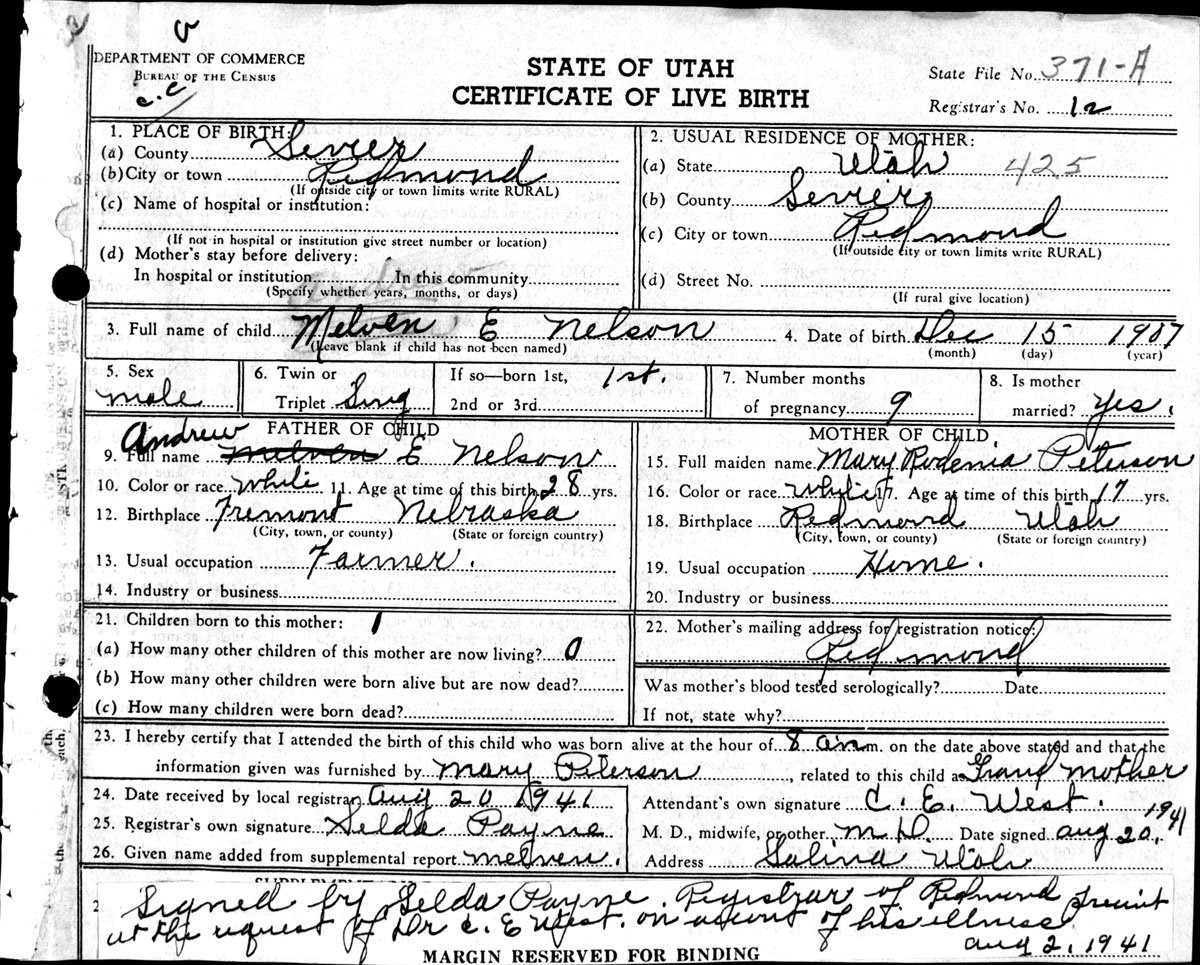 DEPARTMENT OF COMMERCE
BUREAU OF THE CENSUS
c.c
STATE OF UTAH
CERTIFICATE OF LIVE BIRTH
State File No. 371-A
Registrar's No. 12
1. PLACE OF BIRTH:
(a) County Sevier
(b) City or town Redmond
(If outside city or town limits write RURAL)
(c) Name of hospital or institution:
(If not in hospital or institution give street number or location)
(d) Mother's stay before delivery:
In hospital or institution In this community
(Specify whether years, months, or days)
2. USUAL RESIDENCE OF MOTHER:
(a) State Utah 425
(b) County Sevier
(c) City or town Redmond
(If outside city or town limits write RURAL)
(d) Street No.
(If rural give location)
3. Full name of child Melven E Nelson
(Leave blank if child has not been named)
4. Date of birth Dec 15 1907
(month) (day) (year)
5. Sex male
6. Twin or Triplet Sing
If so—born 1st, 1st.
2nd or 3rd
7. Number months of pregnancy 9
8. Is mother married? Yes.
FATHER OF CHILD
Andrew
9. Full name Melven E Nelson
10. Color or race White 11. Age at time of this birth 28 yrs.
12. Birthplace Fremont Nebraska
(City, town, or county) (State or foreign country)
13. Usual occupation Farmer.
14. Industry or business
MOTHER OF CHILD
15. Full maiden name Mary Rodenia Peterson
16. Color or race White 17. Age at time of this birth 17 yrs.
18. Birthplace Redmond Utah
(City, town, or county) (State or foreign country)
19. Usual occupation Home.
20. Industry or business
21. Children born to this mother: 1
(a) How many other children of this mother are now living? 0
(b) How many other children were born alive but are now dead?
(c) How many children were born dead?
22. Mother's mailing address for registration notice:
Redmond
Was mother's blood tested serologically? Date
If not, state why?
23. I hereby certify that I attended the birth of this child who was born alive at the hour of 8 am m. on the date above stated and that the
information given was furnished by Mary Peterson, related to this child as Grand mother
24. Date received by local registrar Aug 20 1941
25. Registrar's own signature Selda Payne
26. Given name added from supplemental report melven.
Attendant's own signature C. E. West.
M. D., midwife, or other M.D. Date signed Aug 20, 1941
Address Salina Utah
Signed by Selda Payne. Registrar of Redmond Precint
at the request of Dr C. E West. on acount of his illness
Aug 2, 1941
MARGIN RESERVED FOR BINDING